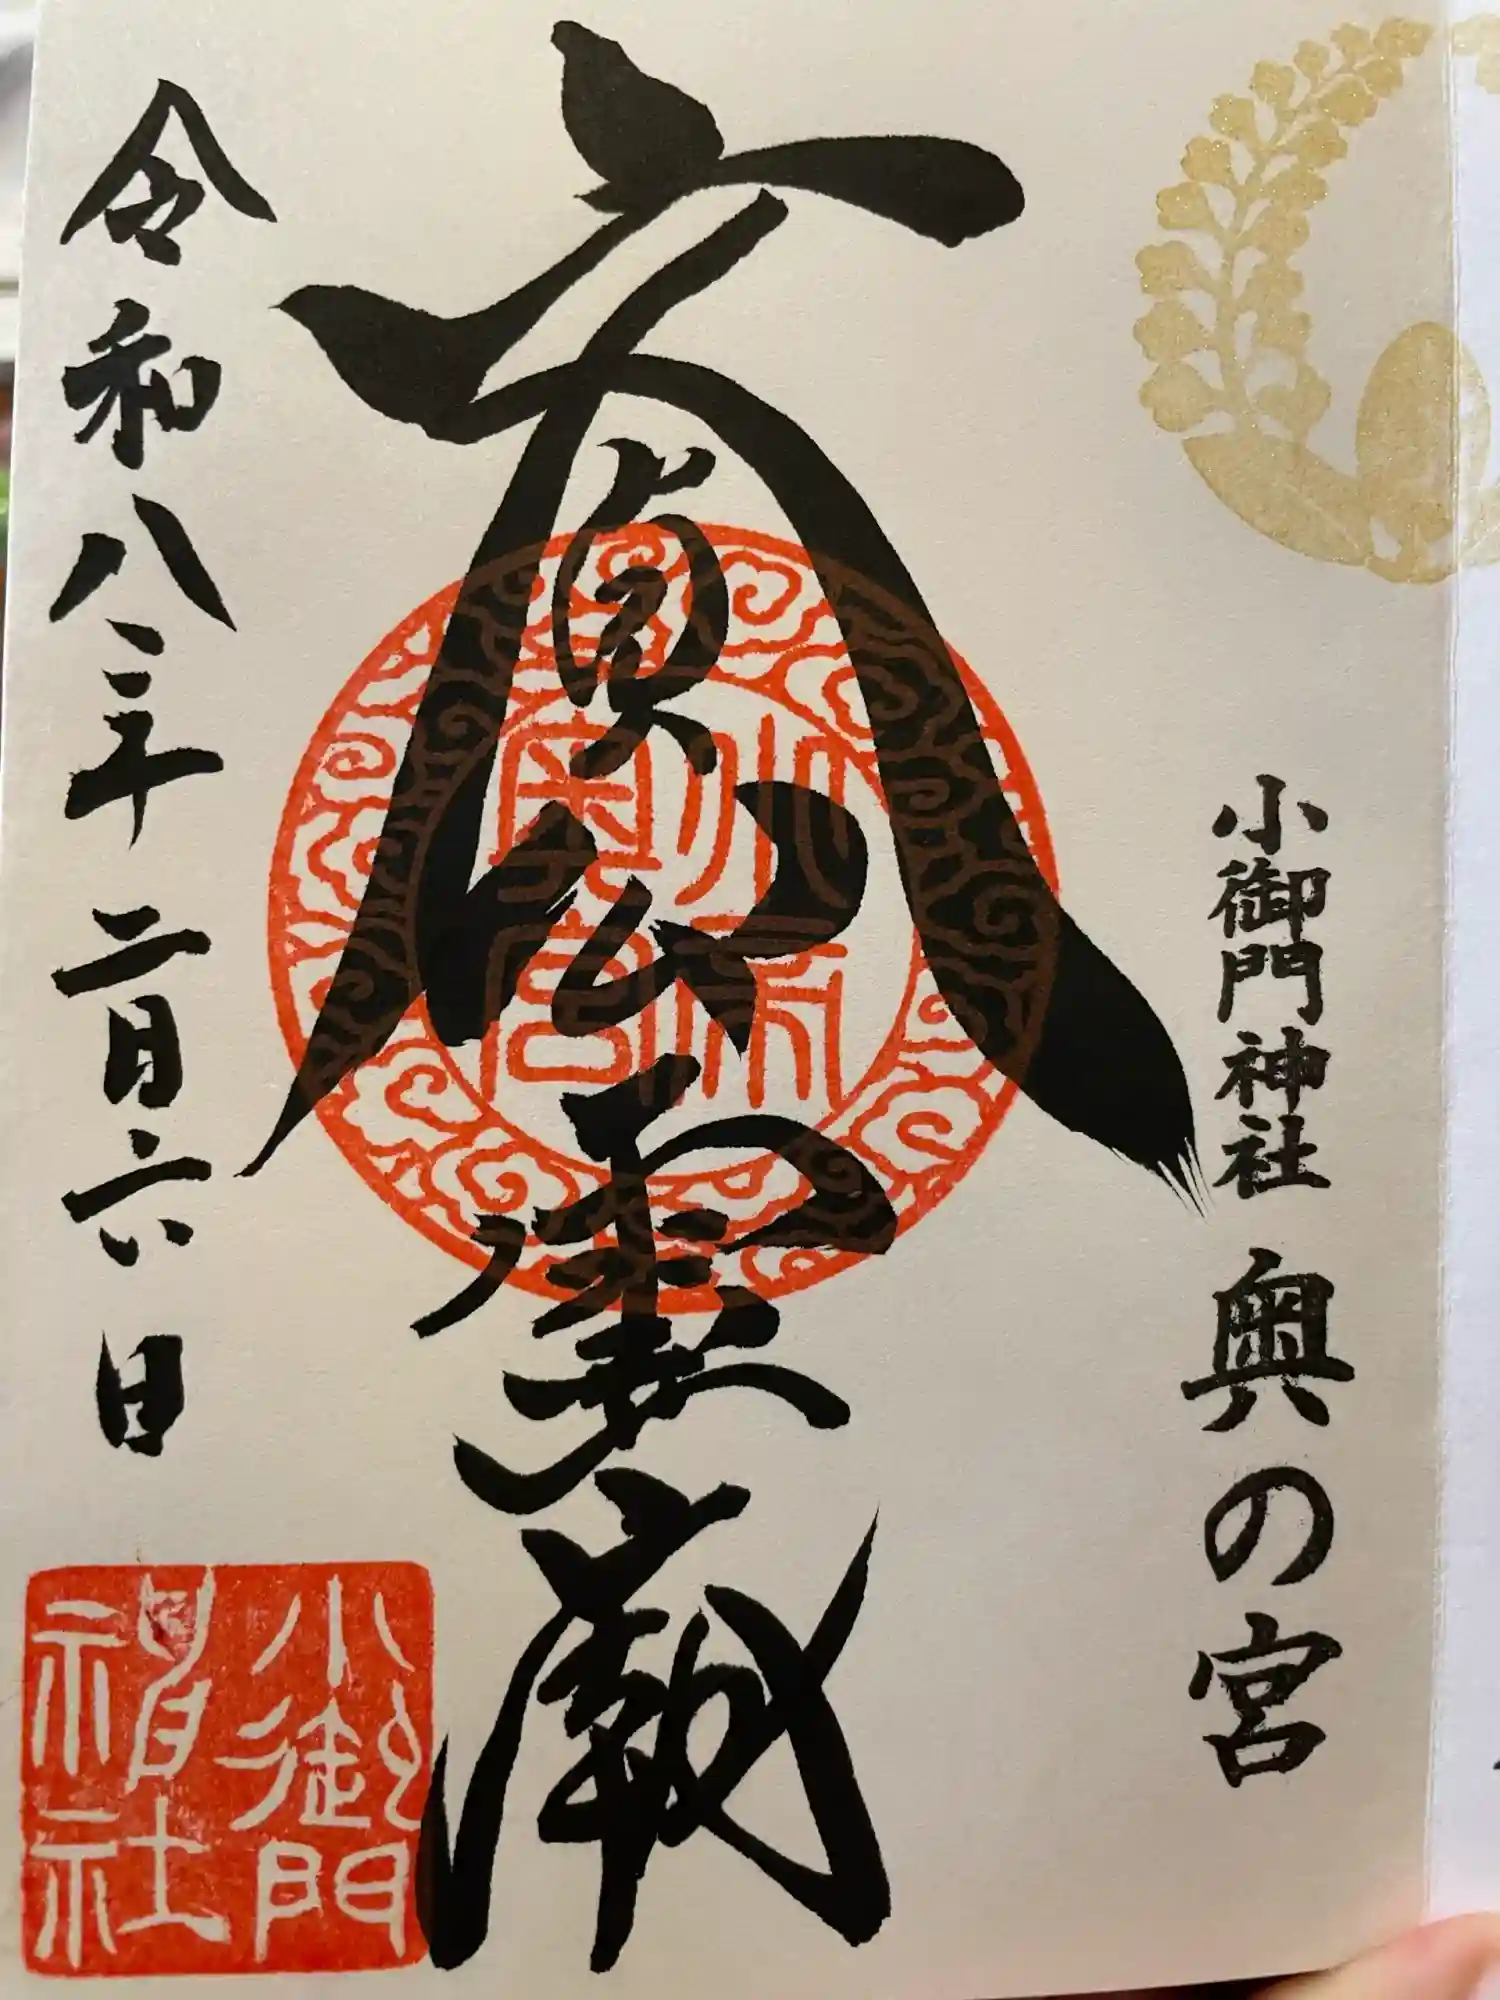 小御門神社 奥の宮
文貞公
令和八年二月六日
小御門
神社